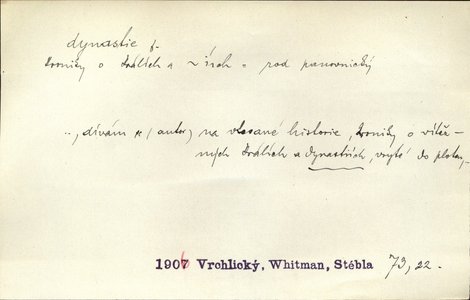 dynastie f.
kroniky o králích a ~ iích = rod panovnický
.., dívám se (autor) na vtesané historie, kroniky o vítěz-
ných králích a dynastiích, vryté do plotny..
1906 Vrchlický, Whitman, Stébla 73, 22.